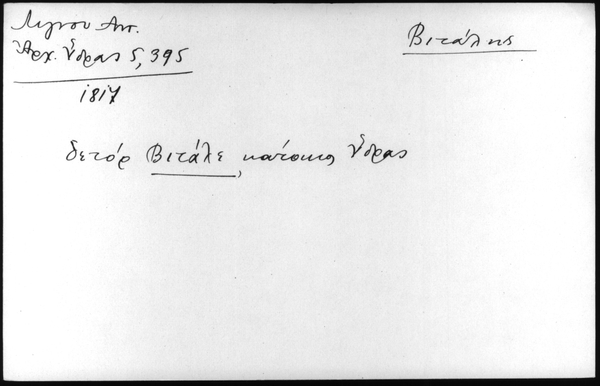 Λιγνού Αντ.
Ἀρχ. Ὕδρας 5, 395
1817
Βιτάλης
δετόρ Βιτάλε, κάτοικος Ὕδρας